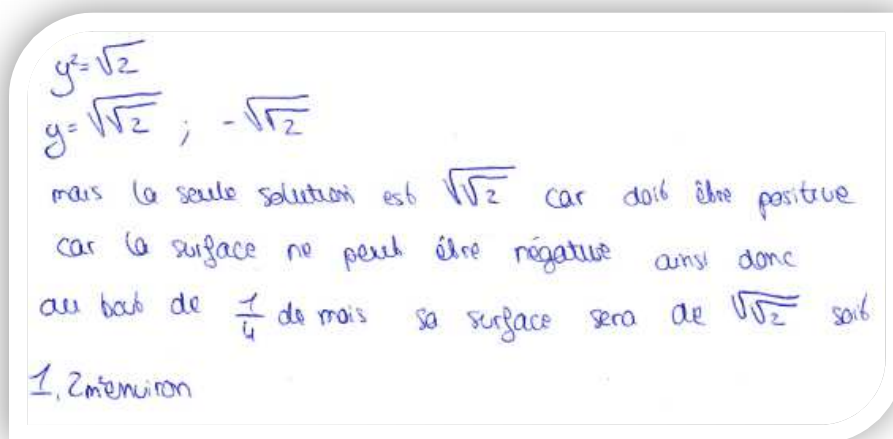 y²=√2
y=√√2 ; -√√2
mais la seule solution est √√2 car doit être positive
car la surface ne peut être négative ainsi donc
au bout de 1/4 de mois sa surface sera de √√2 soit
1,2m² environ